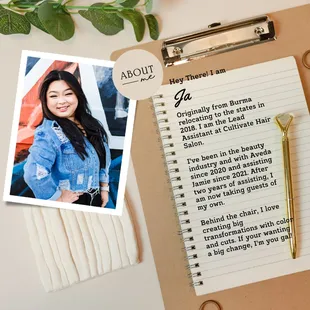 ABOUT
me
Hey There! I am
Ja
Originally from Burma
relocating to the states in
2018. I am the Lead
Assistant at Cultivate Hair
Salon.
I've been in the beauty
industry and with Aveda
since 2020 and assisting
Jamie since 2021. After
two years of assisting, I
am now taking guests of
my own.
Behind the chair, I love
creating big
transformations with color
and cuts. If your wanting
a big change, I'm you gal!